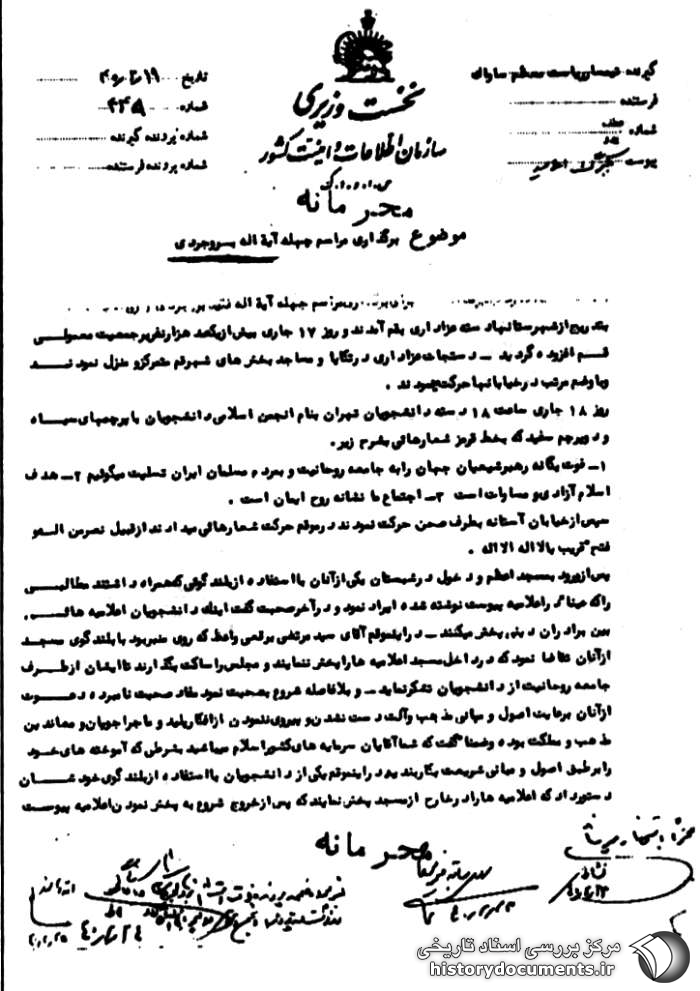 گیرنده تیمسار ریاست معظم ساواک
فرستنده
شماره
پیوست
نخست وزیری
سازمان اطلاعات و امنیت کشور
س.ا.و.ا.ک
تاریخ
شماره ۴۴۵
شماره پرونده گیرنده
شماره پرونده فرستنده
محرمانه
موضوع برگذاری مراسم چهله آیة اله بروجردی
مراسم چهله آیة اله فقید
بتدریج از شهرستانها دسته عزاداری بقم آمدند و روز ۱۷ جاری بیش از یکصد هزار نفر بر جمعیت معمولی
قم افزوده گردید ــ دستجات عزاداری در تکایا و مساجد بخش های شهر قم متمرکز و منزل نمودند
و با وضع مرتب در خیابانها حرکت نمودند .
روز ۱۸ جاری ساعت ۱۸ دسته دانشجویان تهران بنام انجمن اسلامی دانشجویان با پرچمهای سیاه
و دو پرچم سفید که بخط قرمز شعارهائی بشرح زیر .
۱ــ فوت یگانه رهبر شیعیان جهان را به جامعه روحانیت و بمردم مسلمان ایران تسلیت میگوئیم ۲ــ هدف
اسلام آزادی و مساوات است ۳ــ اجتماع ما نشانه روح ایمان است .
سپس از خیابان آستانه بطرف صحن حرکت نمودند در موقع حرکت شعارهائی میدادند از قبیل نصر من اله و
فتح قریب یا لااله الا اله .
پس از ورود بمسجد اعظم و دخول در شبستان یکی از آنان با استفاده از بلندگوئی که همراه داشتند مطالبی
را که عیناً در اعلامیه پیوست نوشته شده ایراد نمود و در آخر صحبت گفت اینک دانشجویان اعلامیه هائی
بین برادران دینی پخش میکنند ــ در اینموقع آقای سید مرتضی برقعی واعظ که روی منبر بود با بلندگوی مسجد
از آنان تقاضا نمود که در داخل مسجد اعلامیه ها را پخش ننمایند و مجلس را ساکت بگذارند تا ایشان از طرف
جامعه روحانیت از دانشجویان تشکر نماید ــ و بلافاصله شروع بصحبت نمود مفاد صحبت نامبرده دعوت
از آنان برعایت اصول و مبانی مذهب و آلت دست نشدن و پیروی ننمودن از افکار پلید و ماجراجویان و معاندین
مذهب و مملکت بوده و ضمناً گفت که شما آقایان سرمایه های کشور اسلام میباشید بشرطی که آموخته های خود
را بر طبق اصول و مبانی شریعت بکار ببندید در اینموقع یکی از دانشجویان با استفاده از بلندگوی خودشان
دستور داد که اعلامیه ها را در خارج از مسجد پخش نمایند که پس از خروج شروع به پخش نمودن اعلامیه پیوست
محرمانه
مرکز بررسی اسناد تاریخی
historydocuments.ir